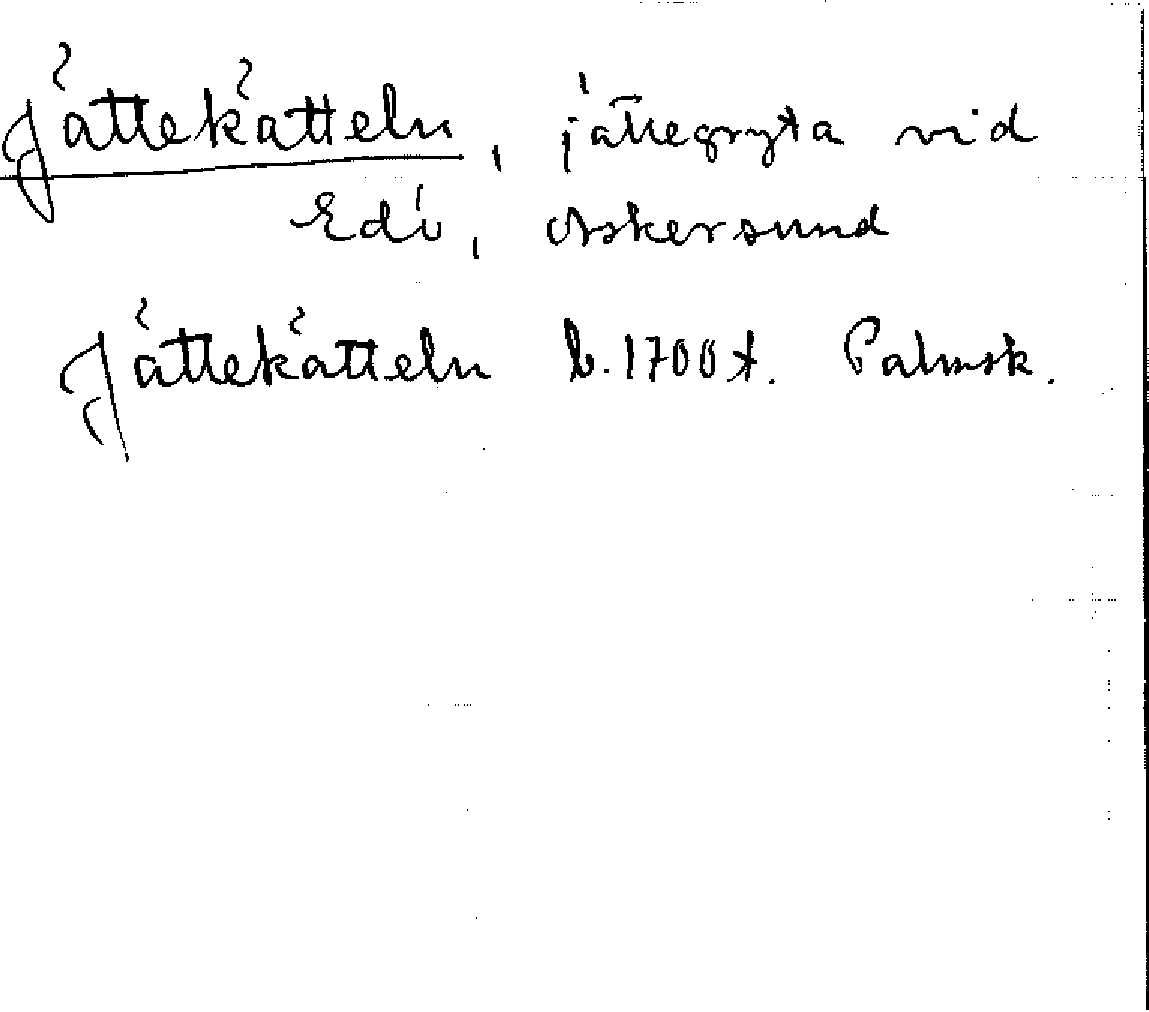 Jättekätteln, jättegryta vid
Edö, Askersund
Jättekätteln b. 1700 t. Palmsk.